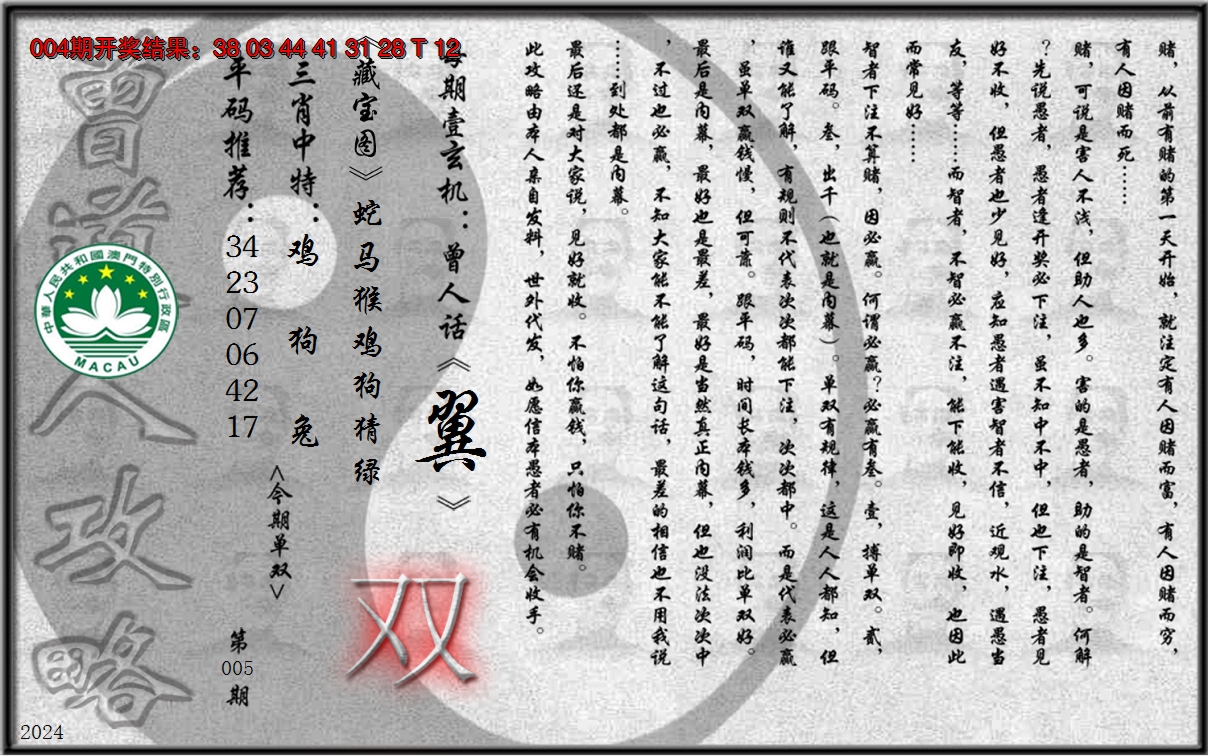 004期开奖结果：38 03 44 41 31 28 T 12
赌，从前有赌的第一天开始，就注定有人因赌而富，有人因赌而穷，
有人因赌而死……
赌，可说是害人不浅，但助人也多。害的是愚者，助的是智者。何解
？先说愚者，愚者逢开奖必下注，虽不知中不中，但也下注，愚者见
好不收，但愚者也少见好，应知愚者遇害智者不信，近观水，遇愚当
友，等等……而智者，不智必赢不注，能下能收，见好即收，也因此
而常见好……
智者下注不算赌，因必赢。何谓必赢？必赢有叁。壹，搏单双。贰，
跟平码。叁，出千（也就是内幕）。单双有规律，这是人人都知，但
谁又能了解，有规则不代表次次都能下注，次次都中。而是代表必赢
，虽单双赢钱慢，但可靠。跟平码，时间长本钱多，利润比单双好。
最后是内幕，最好也是最差，最好是当然真正内幕，但也没法次次中
，不过也必赢，不知大家能不能了解这句话，最差的相信也不用我说
……到处都是内幕。
最后还是对大家说，见好就收。不怕你赢钱，只怕你不赌。
此攻略由本人亲自发料，世外代发，如愿信本愚者必有机会收手。
每期壹玄机：曾人话《翼》
《藏宝图》蛇马猴鸡狗猜绿
双
三肖中特：鸡 狗 兔
<今期单双>
平码推荐：34 23 07 06 42 17
第005期
曾道人攻略
中華人民共和國澳門特別行政區
MACAU
2024